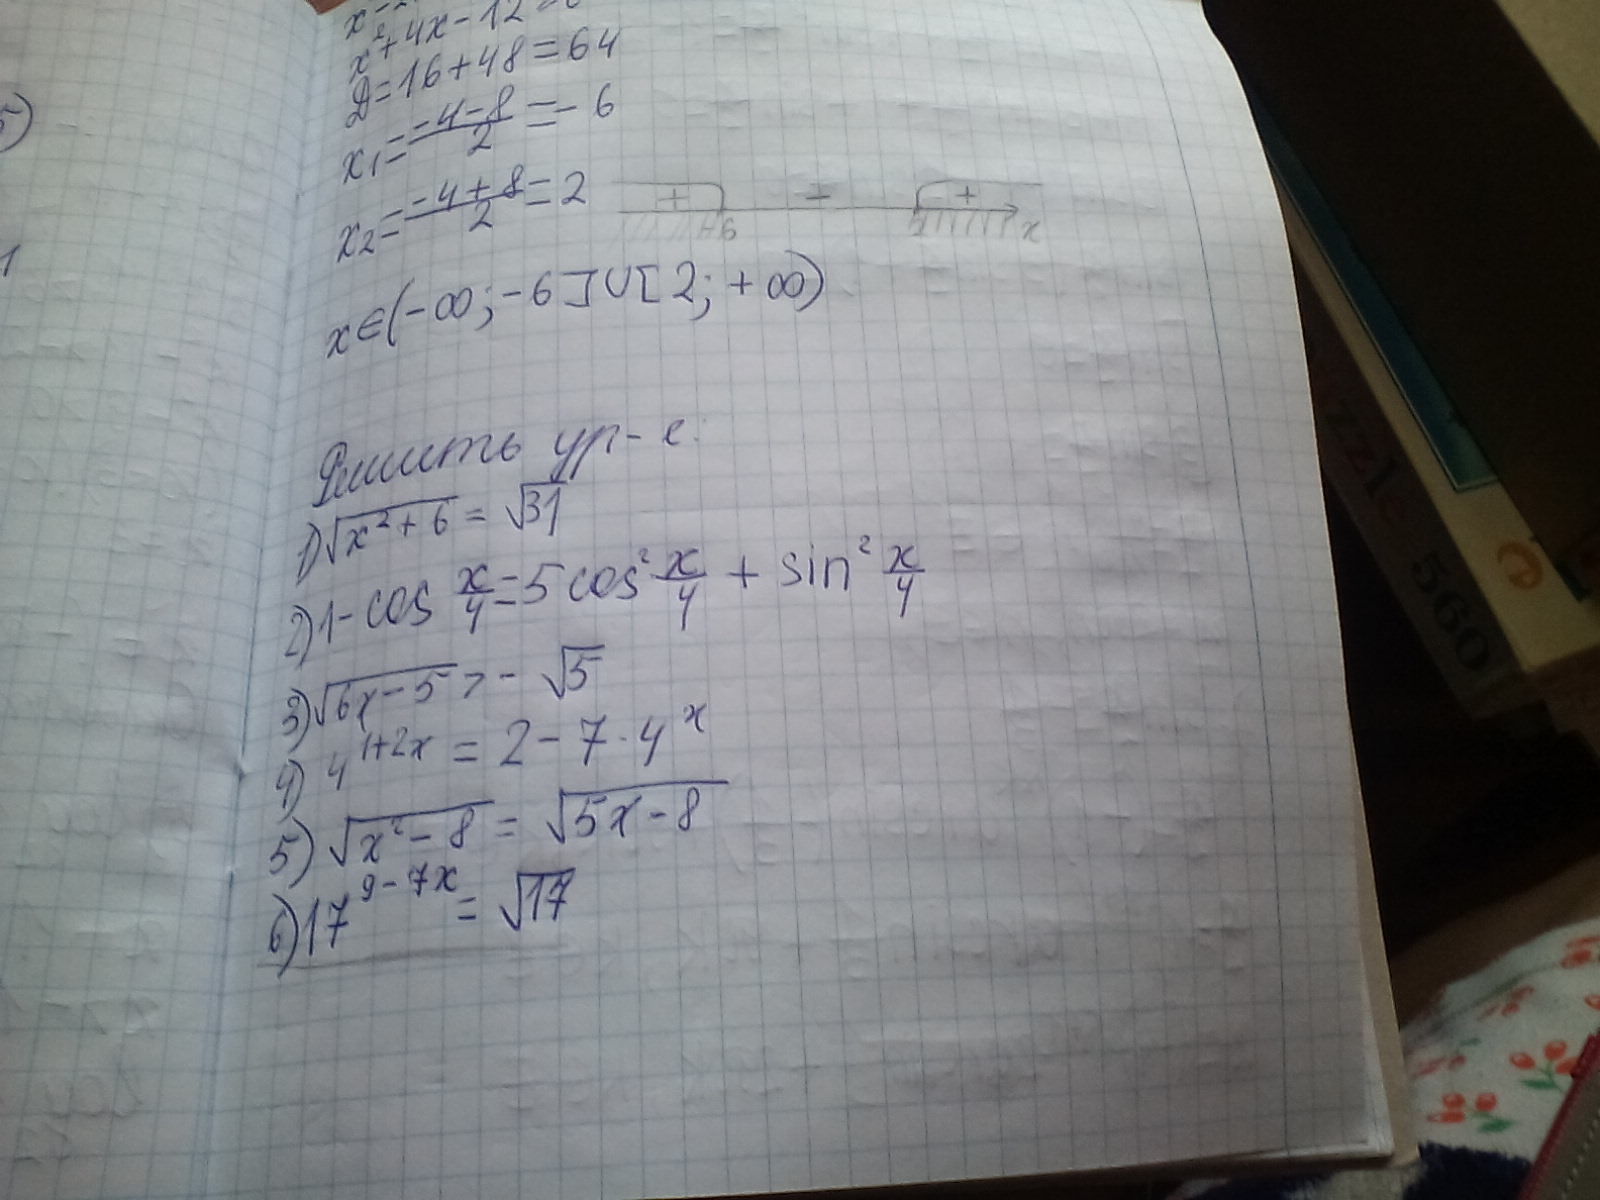 5)
1
x²+4x-12=0
Д=16+48=64
x₁=(-4-8)/2=-6
x₂=(-4+8)/2=2
+ - +
-6 2 x
x∈(-∞;-6]∪[2;+∞)
Решить ур-е:
1)√(x²+6) = √31
2)1-cos x/4=5cos² x/4 + sin² x/4
3)√(6x-5) > -√5
4) 4^(1+2x) = 2-7·4^x
5) √(x²-8) = √(5x-8)
6)17^(9-7x) = √17
zzle 560